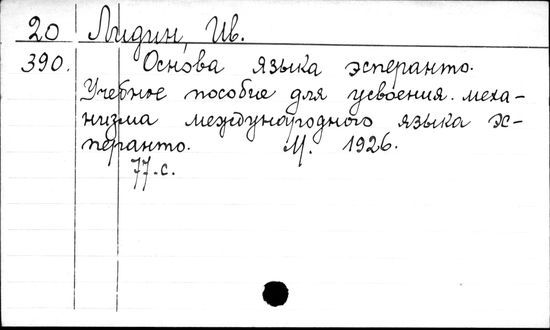 20 Лидин, Ив.
390. Основа языка эсперанто.
Учебное пособие для усвоения меха-
низма международного языка эс-
перанто. М. 1926.
77 с.